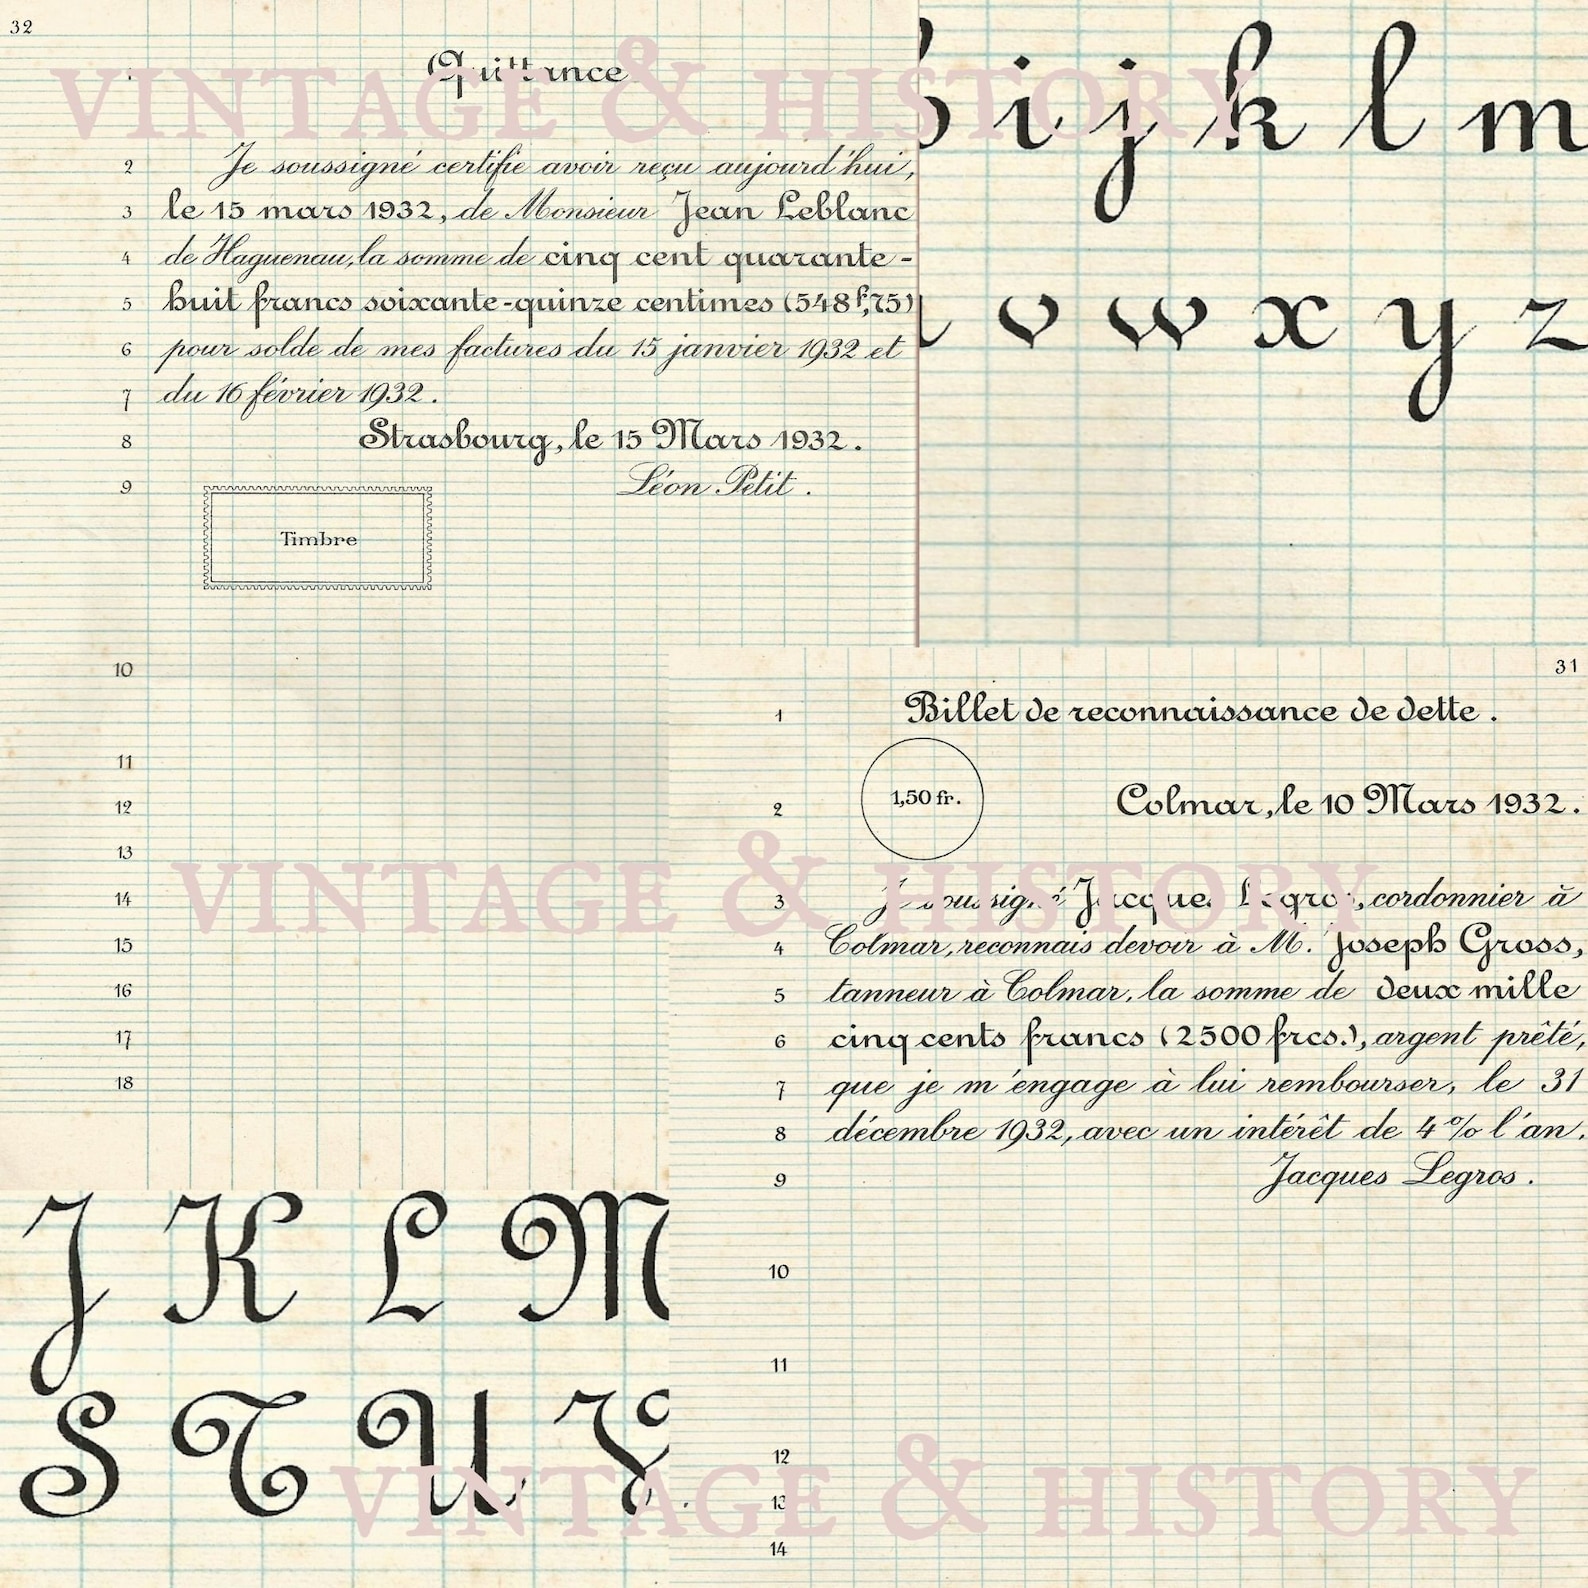 32
1 Quittance
2 Je soussigné certifie avoir reçu aujourd'hui,
3 le 15 mars 1932, de Monsieur Jean Leblanc
4 de Haguenau, la somme de cinq cent quarante-
5 huit francs soixante-quinze centimes (548f,75)
6 pour solde de mes factures du 15 janvier 1932 et
7 du 16 février 1932.
8 Strasbourg, le 15 Mars 1932.
9 Léon Petit.
Timbre
10
11
12
13
14
15
16
17
18
i j k l m
v w x y z
31
1 Billet de reconnaissance de dette.
1,50 fr.
2 Colmar, le 10 Mars 1932.
3 Je soussigné Jacques Legros, cordonnier à
4 Colmar, reconnais devoir à M. Joseph Gross,
5 tanneur à Colmar, la somme de deux mille
6 cinq cents francs (2500 frcs.), argent prêté,
7 que je m'engage à lui rembourser, le 31
8 décembre 1932, avec un intérêt de 4% l'an.
9 Jacques Legros.
10
11
12
13
14
J K L M
S T U V
VINTAGE & HISTORY
VINTAGE & HISTORY
VINTAGE & HISTORY